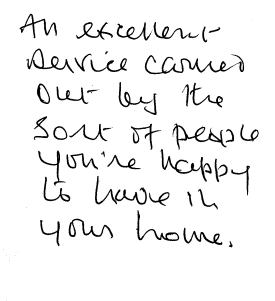 An excellent
service carried
out by the
sort of people
you're happy
to have in
your home.